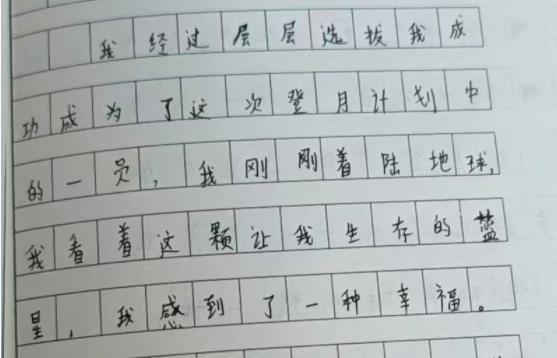 我经过层层选拔我成
功成为了这次登月计划中
的一员，我刚刚着陆地球，
我看着这颗让我生存的蓝
星，我感到了一种幸福。